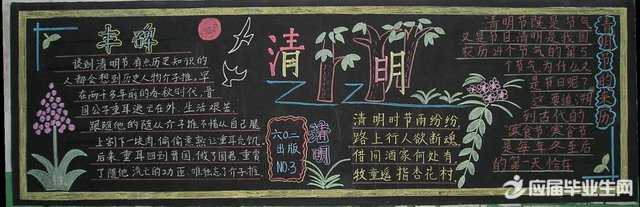 丰碑
谈到清明节,有点历史知识的
人都会想到历史人物介子推,早
在两千多年前的春秋时代,晋
国公子重耳逃亡在外,生活艰苦,
跟随他的随从介子推不惜从自己腿
上割下一块肉,偷偷煮熟让重耳充饥.
后来,重耳回到晋国,做了国君,重赏
了随他流亡的功臣,唯独忘了介子推.
清明
六〇二
出版
NO.3
清明
清明时节雨纷纷,
路上行人欲断魂,
借问酒家何处有
牧童遥指杏花村.
清明节的来历
清明节既是节气
又是节日清明是我国
农历24个节气的第5
个节气为什么又
是节日呢?
这要追溯
到古代的
寒食节寒食节
是每年冬至后
的第一天恰在
应届毕业生网